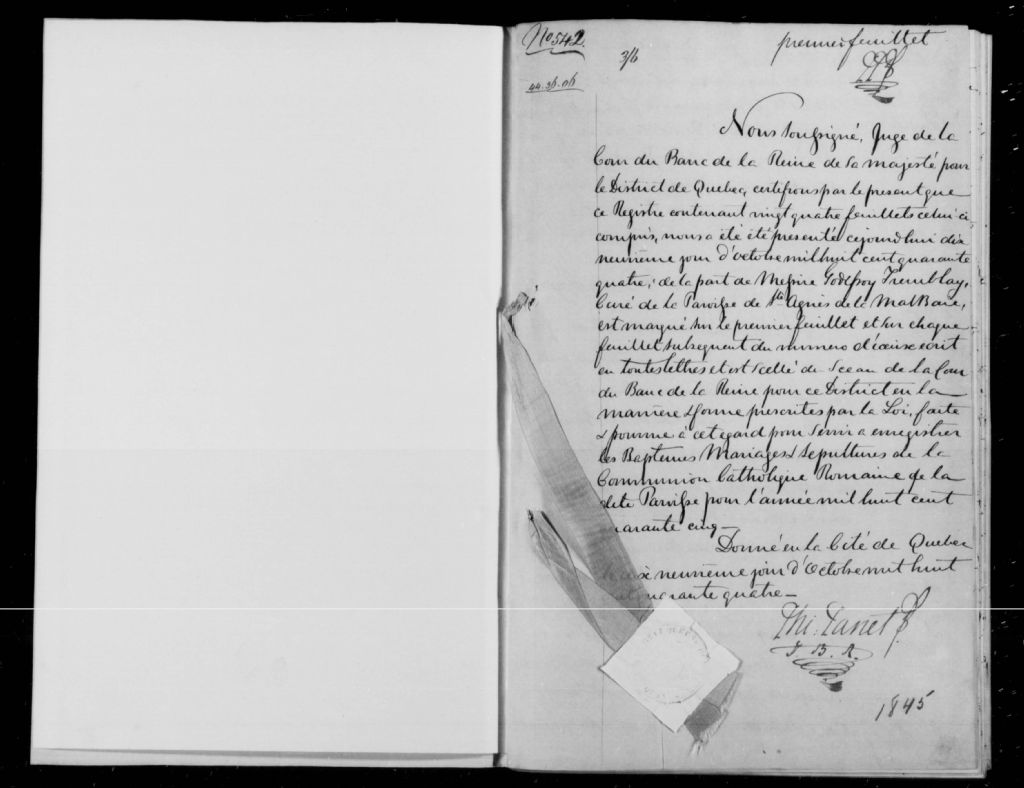 No 542.
premier feuillet
3/6
44.36.06
Nous Soussigné, Juge de la
Cour du Banc de la Reine de Sa majesté pour
le District de Quebec, certifions par le present que
ce Registre contenant vingt quatre feuillets celui ci
compris, nous a été été presenté cejourd'hui dix
neuvième jour d'Octobre mil huit cent quarante
quatre, de la part de Messire Godfroy Tremblay,
Curé de la Paroisse de Ste Agnès de la Mal Baie,
est marqué sur le premier feuillet et sur chaque
feuillet subsequent du numero d'iceux écrit
en toutes lettres et est scellé du Sceau de la Cour
du Banc de la Reine pour ce District en la
manière & forme prescrites par la Loi, faite
& pourvue à cet egard pour servir a enregistrer
les Baptemes Mariages & Sepultures de la
Communion Catholique Romaine de la
dite Paroisse pour l'année mil huit cent
quarante cinq —
Donné en la Cité de Quebec
le dix neuvième jour d'Octobre mil huit
cent quarante quatre —
Phi. Panet
J. B. R.
1845